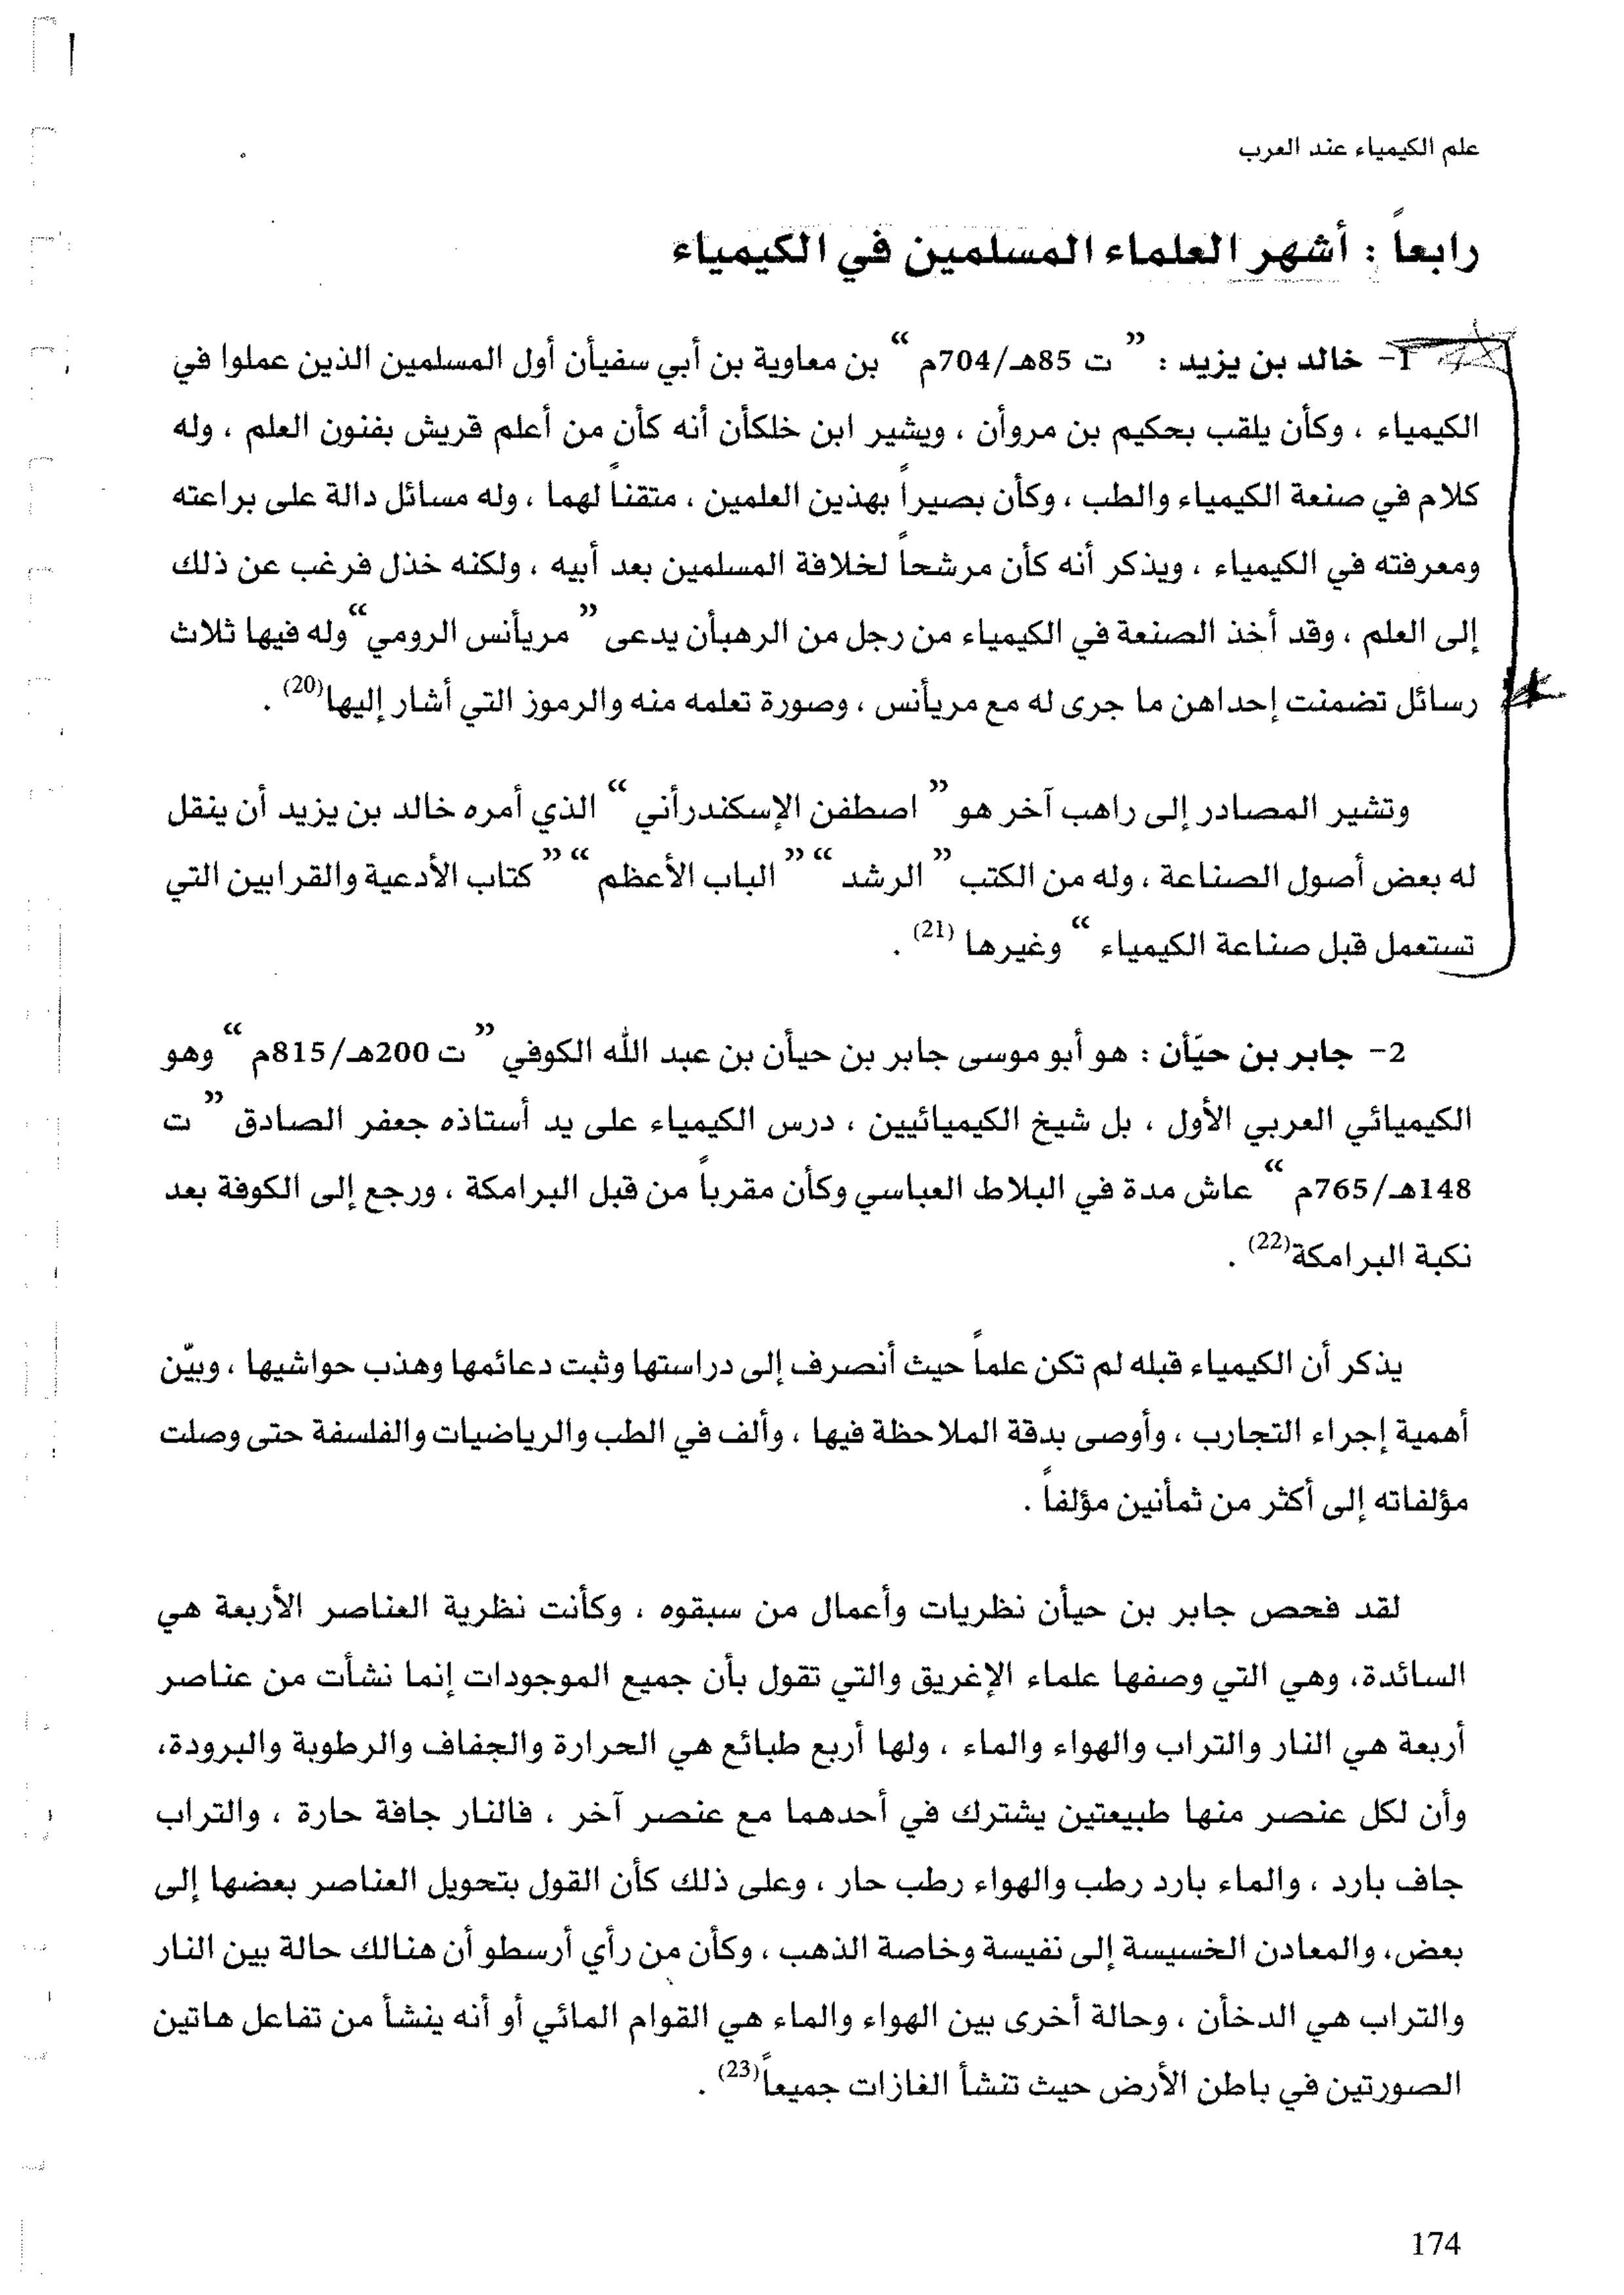 علم الكيمياء عند العرب
رابعاً : أشهر العلماء المسلمين في الكيمياء
1- خالد بن يزيد : " ت 85هـ/704م " بن معاوية بن أبي سفيأن أول المسلمين الذين عملوا في
الكيمياء ، وكأن يلقب بحكيم بن مروأن ، ويشير ابن خلكأن أنه كأن من أعلم قريش بفنون العلم ، وله
كلام في صنعة الكيمياء والطب ، وكأن بصيراً بهذين العلمين ، متقناً لهما ، وله مسائل دالة على براعته
ومعرفته في الكيمياء ، ويذكر أنه كأن مرشحاً لخلافة المسلمين بعد أبيه ، ولكنه خذل فرغب عن ذلك
إلى العلم ، وقد أخذ الصنعة في الكيمياء من رجل من الرهبأن يدعى " مريأنس الرومي " وله فيها ثلاث
رسائل تضمنت إحداهن ما جرى له مع مريأنس ، وصورة تعلمه منه والرموز التي أشار إليها(20) .
وتشير المصادر إلى راهب آخر هو " اصطفن الإسكندرأني " الذي أمره خالد بن يزيد أن ينقل
له بعض أصول الصناعة ، وله من الكتب " الرشد " " الباب الأعظم " " كتاب الأدعية والقرابين التي
تستعمل قبل صناعة الكيمياء " وغيرها (21) .
2- جابر بن حيّأن : هو أبو موسى جابر بن حيأن بن عبد الله الكوفي " ت 200هـ/815م " وهو
الكيميائي العربي الأول ، بل شيخ الكيميائيين ، درس الكيمياء على يد أستاذه جعفر الصادق " ت
148هـ/765م " عاش مدة في البلاط العباسي وكأن مقرباً من قبل البرامكة ، ورجع إلى الكوفة بعد
نكبة البرامكة(22) .
يذكر أن الكيمياء قبله لم تكن علماً حيث أنصرف إلى دراستها وثبت دعائمها وهذب حواشيها ، وبيّن
أهمية إجراء التجارب ، وأوصى بدقة الملاحظة فيها ، وألف في الطب والرياضيات والفلسفة حتى وصلت
مؤلفاته إلى أكثر من ثمأنين مؤلفاً .
لقد فحص جابر بن حيأن نظريات وأعمال من سبقوه ، وكأنت نظرية العناصر الأربعة هي
السائدة، وهي التي وصفها علماء الإغريق والتي تقول بأن جميع الموجودات إنما نشأت من عناصر
أربعة هي النار والتراب والهواء والماء ، ولها أربع طبائع هي الحرارة والجفاف والرطوبة والبرودة،
وأن لكل عنصر منها طبيعتين يشترك في أحدهما مع عنصر آخر ، فالنار جافة حارة ، والتراب
جاف بارد ، والماء بارد رطب والهواء رطب حار ، وعلى ذلك كأن القول بتحويل العناصر بعضها إلى
بعض، والمعادن الخسيسة إلى نفيسة وخاصة الذهب ، وكأن من رأي أرسطو أن هنالك حالة بين النار
والتراب هي الدخأن ، وحالة أخرى بين الهواء والماء هي القوام المائي أو أنه ينشأ من تفاعل هاتين
الصورتين في باطن الأرض حيث تنشأ الغازات جميعاً(23) .
174